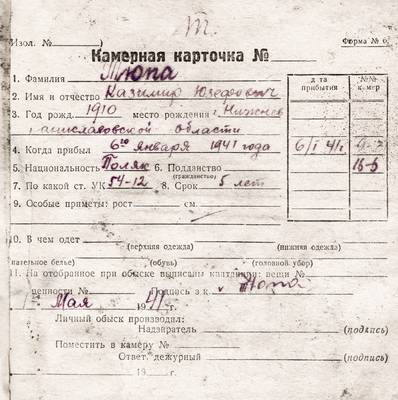 т
Изол. №) Форма № 6.
Камерная карточка №
1. Фамилия Тюпа
2. Имя и отчество Казимир Юзефович
3. Год рожд. 1910 место рождения г. Нижнев
Станиславовской области
4. Когда прибыл 6го января 1941 года
5. Национальность Поляк 6. Подданство
(гражданство)
7. По какой ст. УК 54-12 8. Срок 5 лет
9. Особые приметы: рост см.
д та прибытия №№ к-мер
6/I 41г.
16-б
10. В чем одет
(верхняя одежда) (нижняя одежда)
нательное белье) (обувь) (головной убор)
11. На отобранное при обыске выписаны квитанции: вещи №
ценности № Подпись з.к. Тюпа
Мая 1941г.
Личный обыск производил:
Надзиратель (подпись)
Поместить в камеру №
Ответ. дежурный (подпись)
19 г.